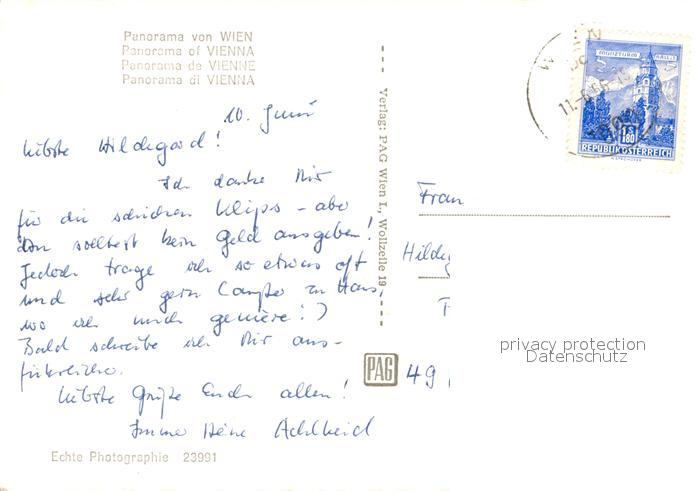 Panorama von WIEN
Panorama of VIENNA
Panorama de VIENNE
Panorama di VIENNA
10. Juni
Liebste Hildegard!
Ich danke Dir
für die schicken Klips - aber
Du solltest kein Geld ausgeben!
Jedoch trage ich so etwas oft
und sehr gern (außer zu Haus,
wo ich mich geniere!)
Bald schreibe ich Dir aus-
führlicher.
Liebste Grüße Euch allen!
Immer Deine Adelheid
Echte Photographie 23991
Verlag: PAG Wien I., Wollzeile 19
PAG
WIEN
REPUBLIK ÖSTERREICH
S 1.80
Frau
Hildeg
49
privacy protection
Datenschutz